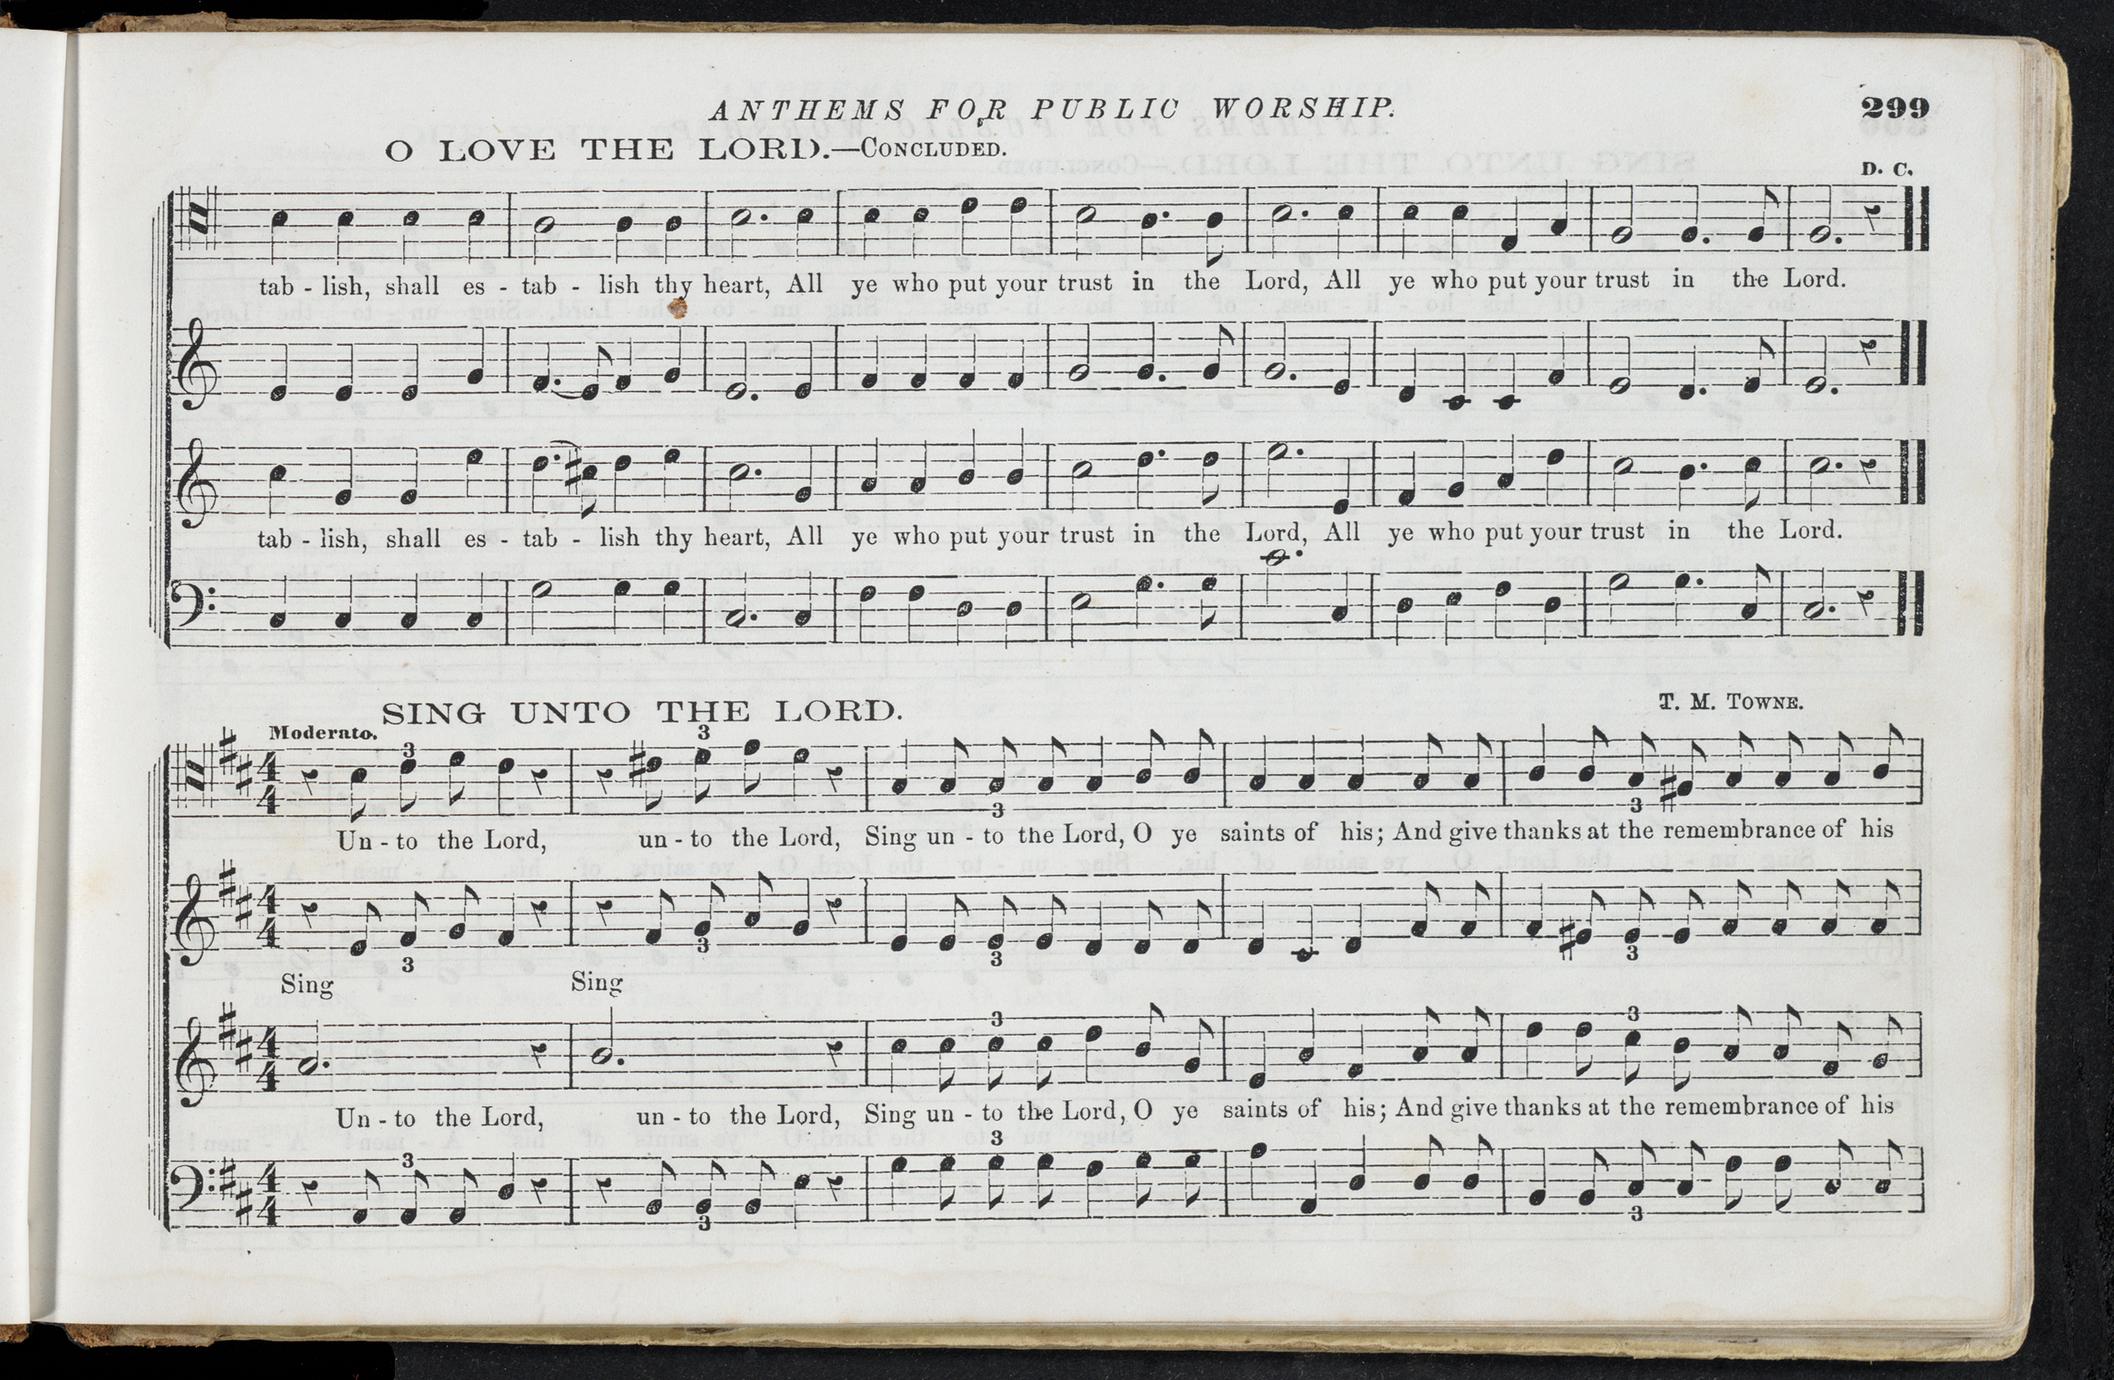 ANTHEMS FOR PUBLIC WORSHIP.
299
O LOVE THE LORD.—CONCLUDED.
D. C.
tab - lish, shall es - tab - lish thy heart, All ye who put your trust in the Lord, All ye who put your trust in the Lord.
tab - lish, shall es - tab - lish thy heart, All ye who put your trust in the Lord, All ye who put your trust in the Lord.
SING UNTO THE LORD.
T. M. TOWNE.
Moderato.
3 3
4
4
3 3
Un - to the Lord, un - to the Lord, Sing un - to the Lord, O ye saints of his; And give thanks at the remembrance of his
4
4
3 3 3 3
Sing Sing
3 3
4
4
Un - to the Lord, un - to the Lord, Sing un - to the Lord, O ye saints of his; And give thanks at the remembrance of his
3 3
4
4
3 3